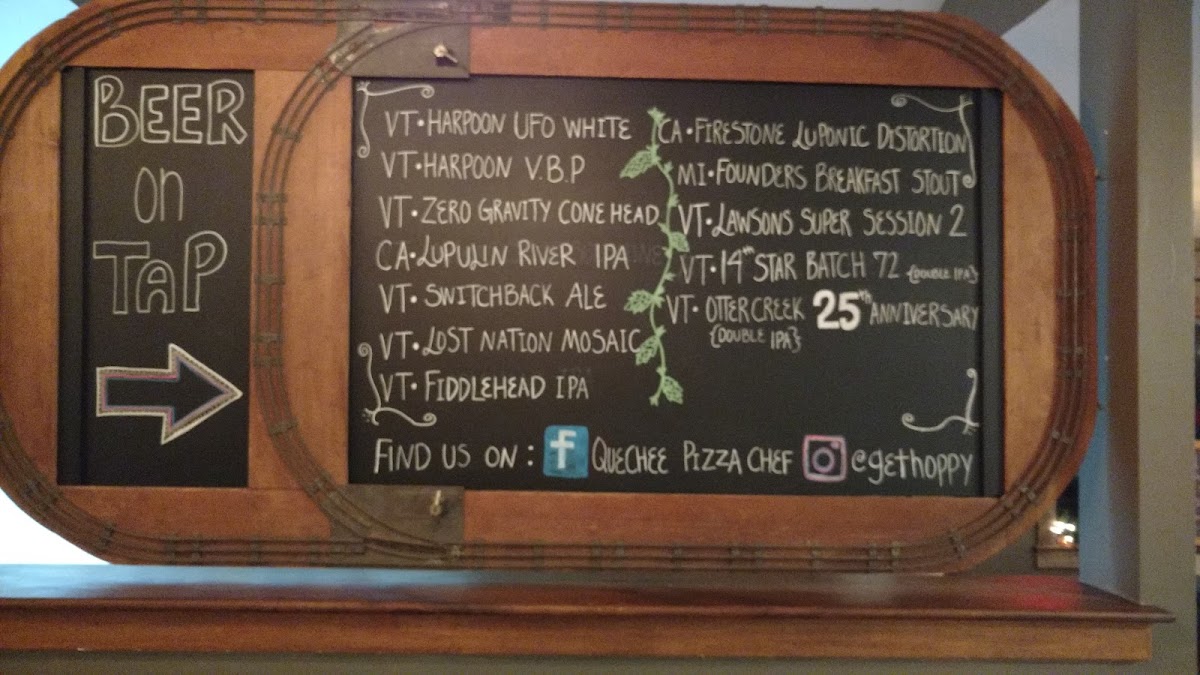 BEER
on
TAP
VT•HARPOON UFO WHITE
VT•HARPOON V.B.P
VT•ZERO GRAVITY CONEHEAD
CA•LUPULIN RIVER IPA
VT•SWITCHBACK ALE
VT•LOST NATION MOSAIC
VT•FIDDLEHEAD IPA
CA•FIRESTONE LUPONIC DISTORTION
MI•FOUNDERS BREAKFAST STOUT
VT•LAWSONS SUPER SESSION 2
VT•14th STAR BATCH 72 {DOUBLE IPA}
VT•OTTER CREEK 25th ANNIVERSARY
{DOUBLE IPA}
FIND US ON: f QUECHEE PIZZA CHEF @gethoppy